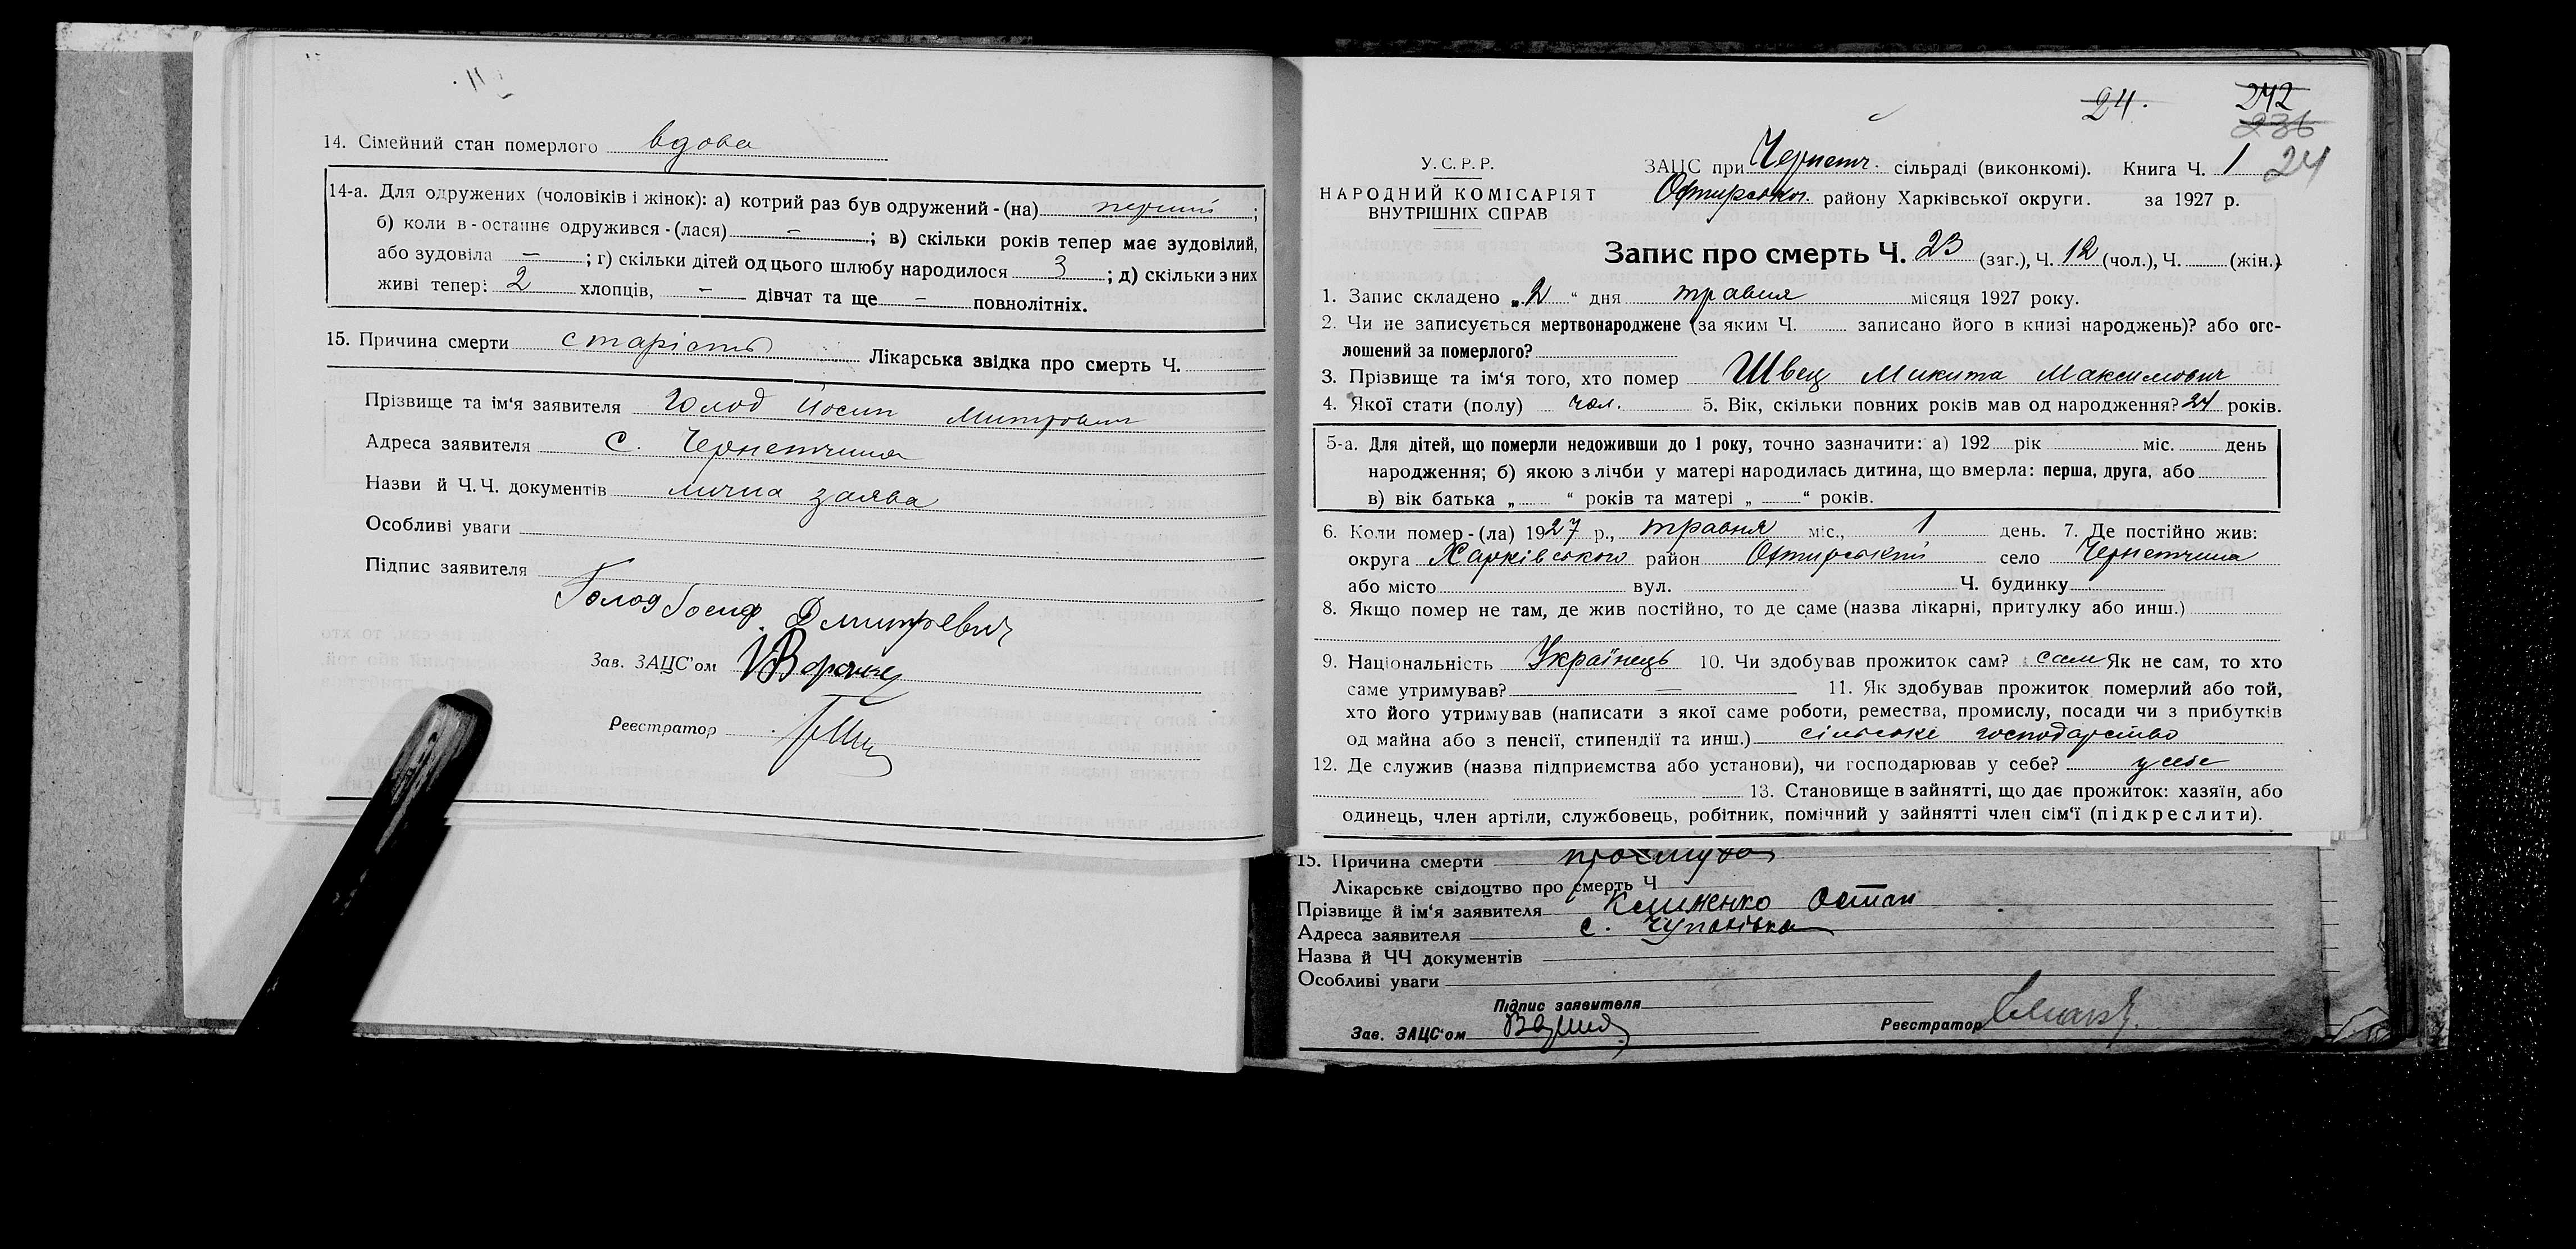 14. Сімейний стан померлого вдова
14-а. Для одружених (чоловіків і жінок): а) котрий раз був одружений-(на) перший ;
б) коли в-останнє одружився-(лася) – ; в) скільки років тепер має зудовілий,
або зудовіла – ; г) скільки дітей од цього шлюбу народилося 3 ; д) скільки з них
живі тепер: 2 хлопців, – дівчат та ще – повнолітніх.
15. Причина смерти старість Лікарська звідка про смерть Ч.
Прізвище та ім'я заявителя Голод Йосип Митрович
Адреса заявителя С. Чернетчина
Назви й Ч.Ч. документів лична заява
Особливі уваги
Підпис заявителя
Голод Дмитревич
Зав. ЗАЦС'ом
Реєстратор
24. 242
236
У.С.Р.Р. ЗАЦС при Чернетч. сільраді (виконкомі). Книга Ч. 1 24
НАРОДНИЙ КОМІСАРІЯТ
ВНУТРІШНІХ СПРАВ
Охтирськог. району Харківської округи. за 1927 р.
Запис про смерть Ч. 23 (заг.), Ч. 12 (чол.), Ч. (жін.)
1. Запис складено „2“ дня травня місяця 1927 року.
2. Чи не записується мертвонароджене (за яким Ч. записано його в книзі народжень)? або ого-
лошений за померлого?
3. Прізвище та ім'я того, хто помер Швец Микита Максимович
4. Якої стати (полу) чол. 5. Вік, скільки повних років мав од народження? 24 років.
5-а. Для дітей, що померли недоживши до 1 року, точно зазначити: а) 192 рік міс. день
народження; б) якою з лічби у матері народилась дитина, що вмерла: перша, друга, або
в) вік батька „ “ років та матері „ “ років.
6. Коли помер-(ла) 1927 р., травня міс., 1 день. 7. Де постійно жив:
округа Харківського район Охтирський село Чернетчина
або місто вул. Ч. будинку
8. Якщо помер не там, де жив постійно, то де саме (назва лікарні, притулку або инш.)
9. Національність Українець 10. Чи здобував прожиток сам? сам Як не сам, то хто
саме утримував? — 11. Як здобував прожиток померлий або той,
хто його утримував (написати з якої саме роботи, ремества, промислу, посади чи з прибутків
од майна або з пенсії, стипендії та инш.) сільське господарство
12. Де служив (назва підприємства або установи), чи господарював у себе? у себе
13. Становище в зайнятті, що дає прожиток: хазяїн, або
одинець, член артіли, службовець, робітник, помічний у зайнятті член сім'ї (підкреслити).
15. Причина смерти
Лікарське свідоцтво про смерть Ч
Прізвище й ім'я заявителя Клименко Остап
Адреса заявителя с. Чупахівка
Назва й ЧЧ документів
Особливі уваги
Підпис заявителя
Зав. ЗАЦС'ом Реєстратор